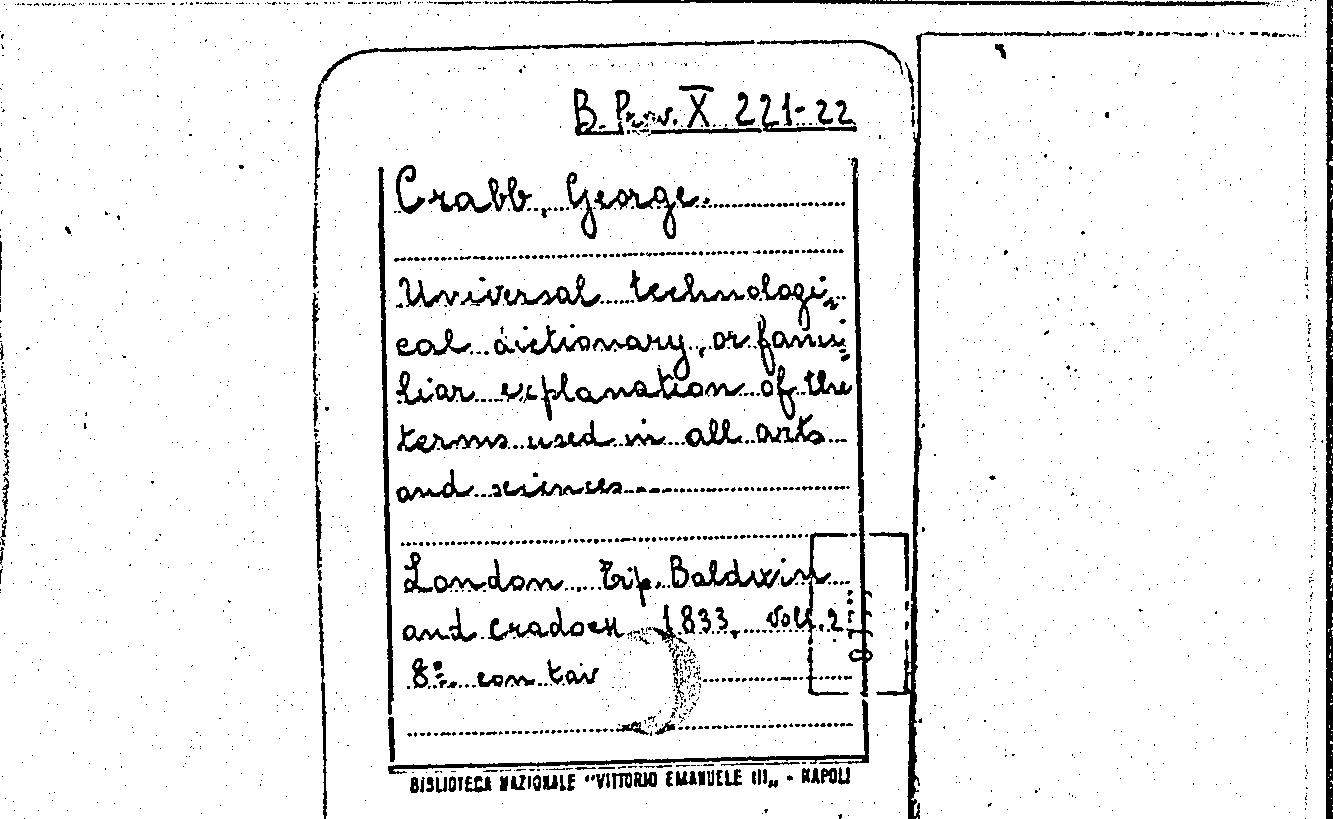 B. Prov. X 221-22
Crabb, George.
Universal technologi-
cal dictionary, or fami=
liar explanation of the
terms used in all arts
and sciences
London. Tip. Baldwin
and Cradock 1833. voll. 2
8º con tav
BIBLIOTECA NAZIONALE "VITTORIO EMANUELE III„ - NAPOLI